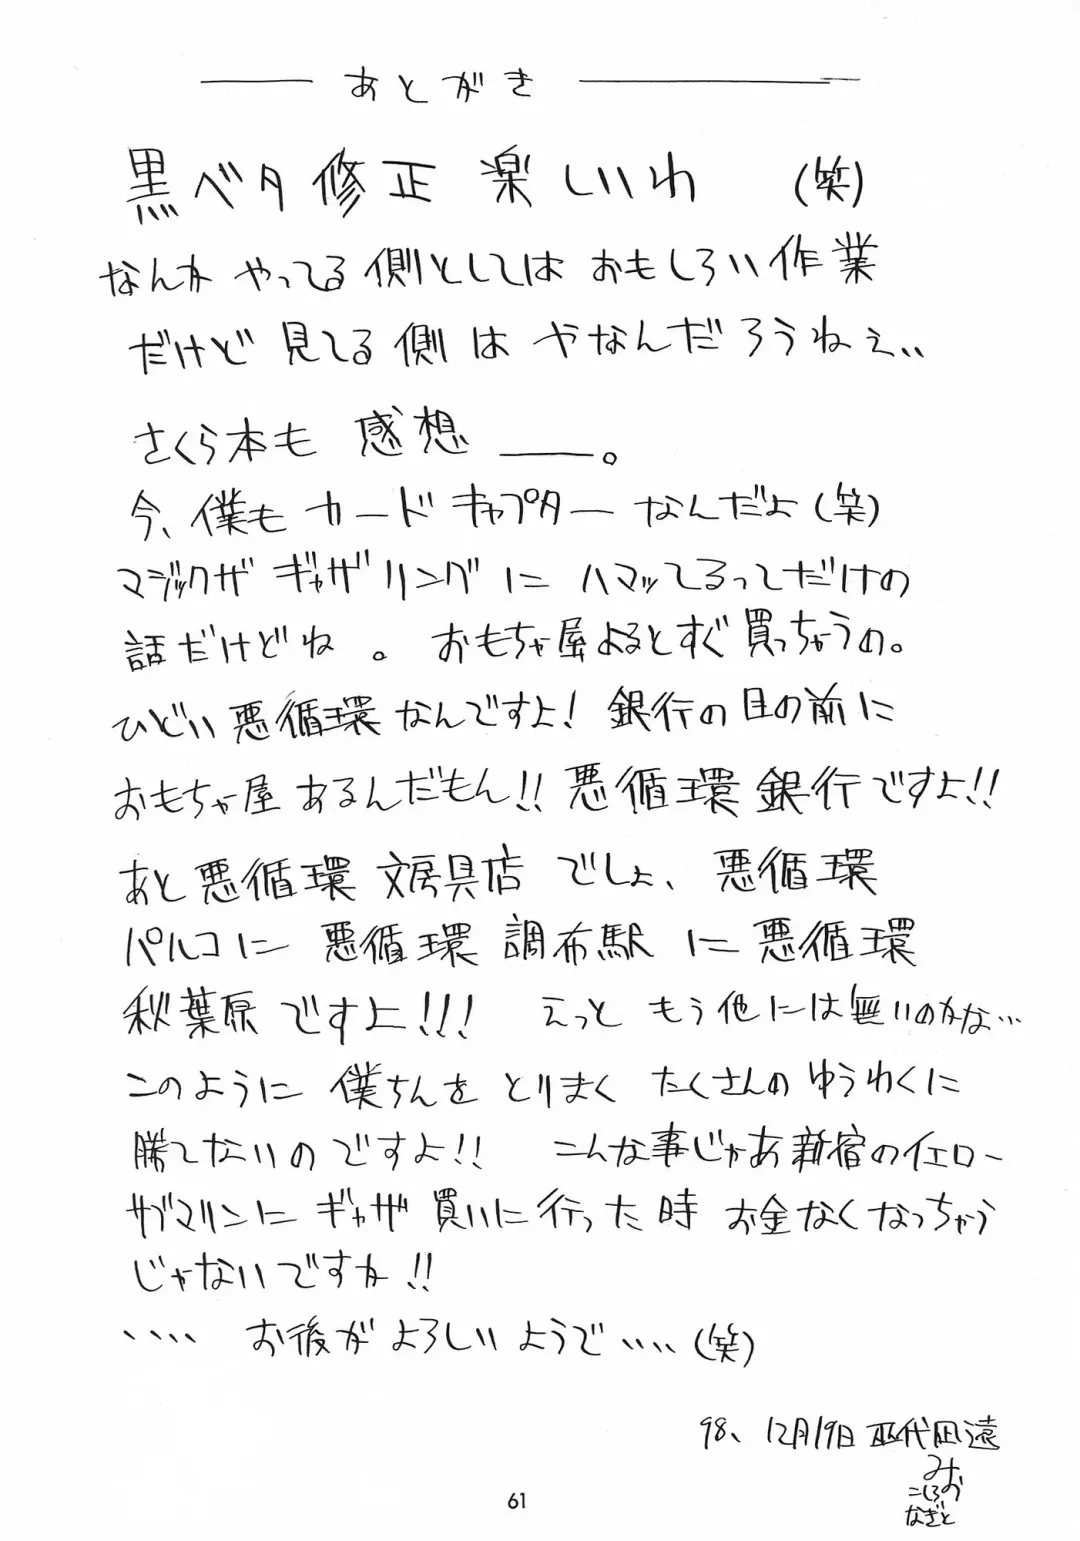 あとがき
黒ベタ修正 楽しいわ (笑)
なんか やってる 側としては おもしろい 作業
だけど 見てる 側は やなんだろうねぇ..
さくら本も 感想 ――。
今、僕も カードキャプターなんだよ(笑)
マジックザ ギャザリングに ハマッてるってだけの
話だけどね。 おもちゃ屋よるとすぐ買っちゃうの。
ひどい 悪循環なんですよ! 銀行の目の前に
おもちゃ屋 あるんだもん!! 悪循環 銀行ですよ!!
あと 悪循環 文房具店 でしょ、 悪循環
パルコに 悪循環 調布駅 に 悪循環
秋葉原 ですよ!!! えっと もう他には無いのかな…
このように 僕ちんを とりまく たくさんの ゆうわくに
勝てないのですよ!! こんな事じゃあ新宿のイエロー
サブマリンに ギャザ 買いに行った時 お金なくなっちゃう
じゃないですか!!
.... お後がよろしいようで....(笑)
98、12月19日 巫代凪遠
みお
こしろ
なぎと
61